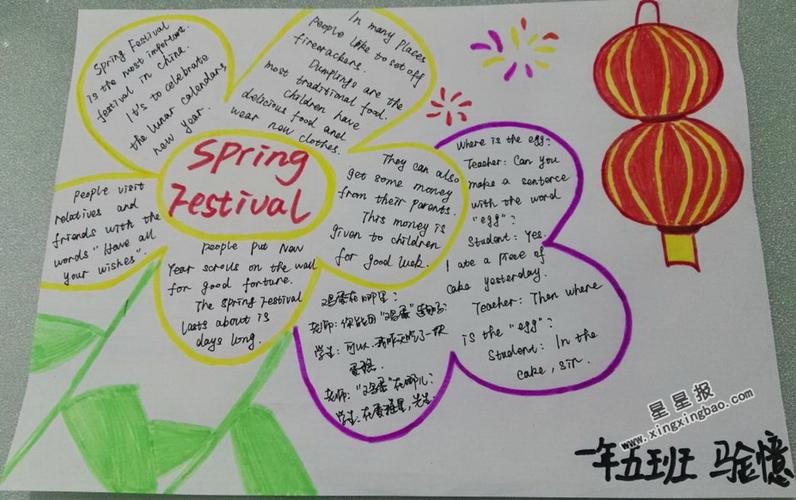 Spring Festival
Spring Festival
is the most important
festival in China.
It's to celebrate
the lunar calendars
new year.
In many places
people like to set off
firecrackers.
Dumplings are the
most traditional food.
Children have
delicious food and
wear new clothes.
They can also
get some money
from their parents.
This money is
given to children
for good luck.
people visit
relatives and
friends with the
words "Have all
your wishes".
people put New
Year scrolls on the wall
for good fortune.
The Spring Festival
lasts about 15
days long.
Where is the egg?
Teacher: Can you
make a sentence
with the word
"egg"?
Student: Yes.
I ate a piece of
cake yesterday.
Teacher: Then where
is the "egg"?
Student: In the
cake, sir.
鸡蛋在哪里?
老师: 你能用"鸡蛋"造句吗?
学生: 可以. 我昨天吃了一块
蛋糕.
老师: "鸡蛋"在哪儿?
学生: 在蛋糕里, 先生.
星星报
www.xingxingbao.com
一年五班